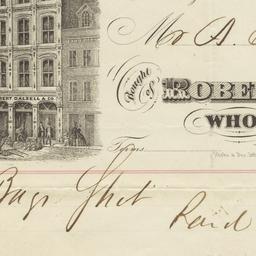 Mr A.
ROBERT DALZELL & CO.
Bought of
ROBE
WHO
Terms
Bags Shot Paid